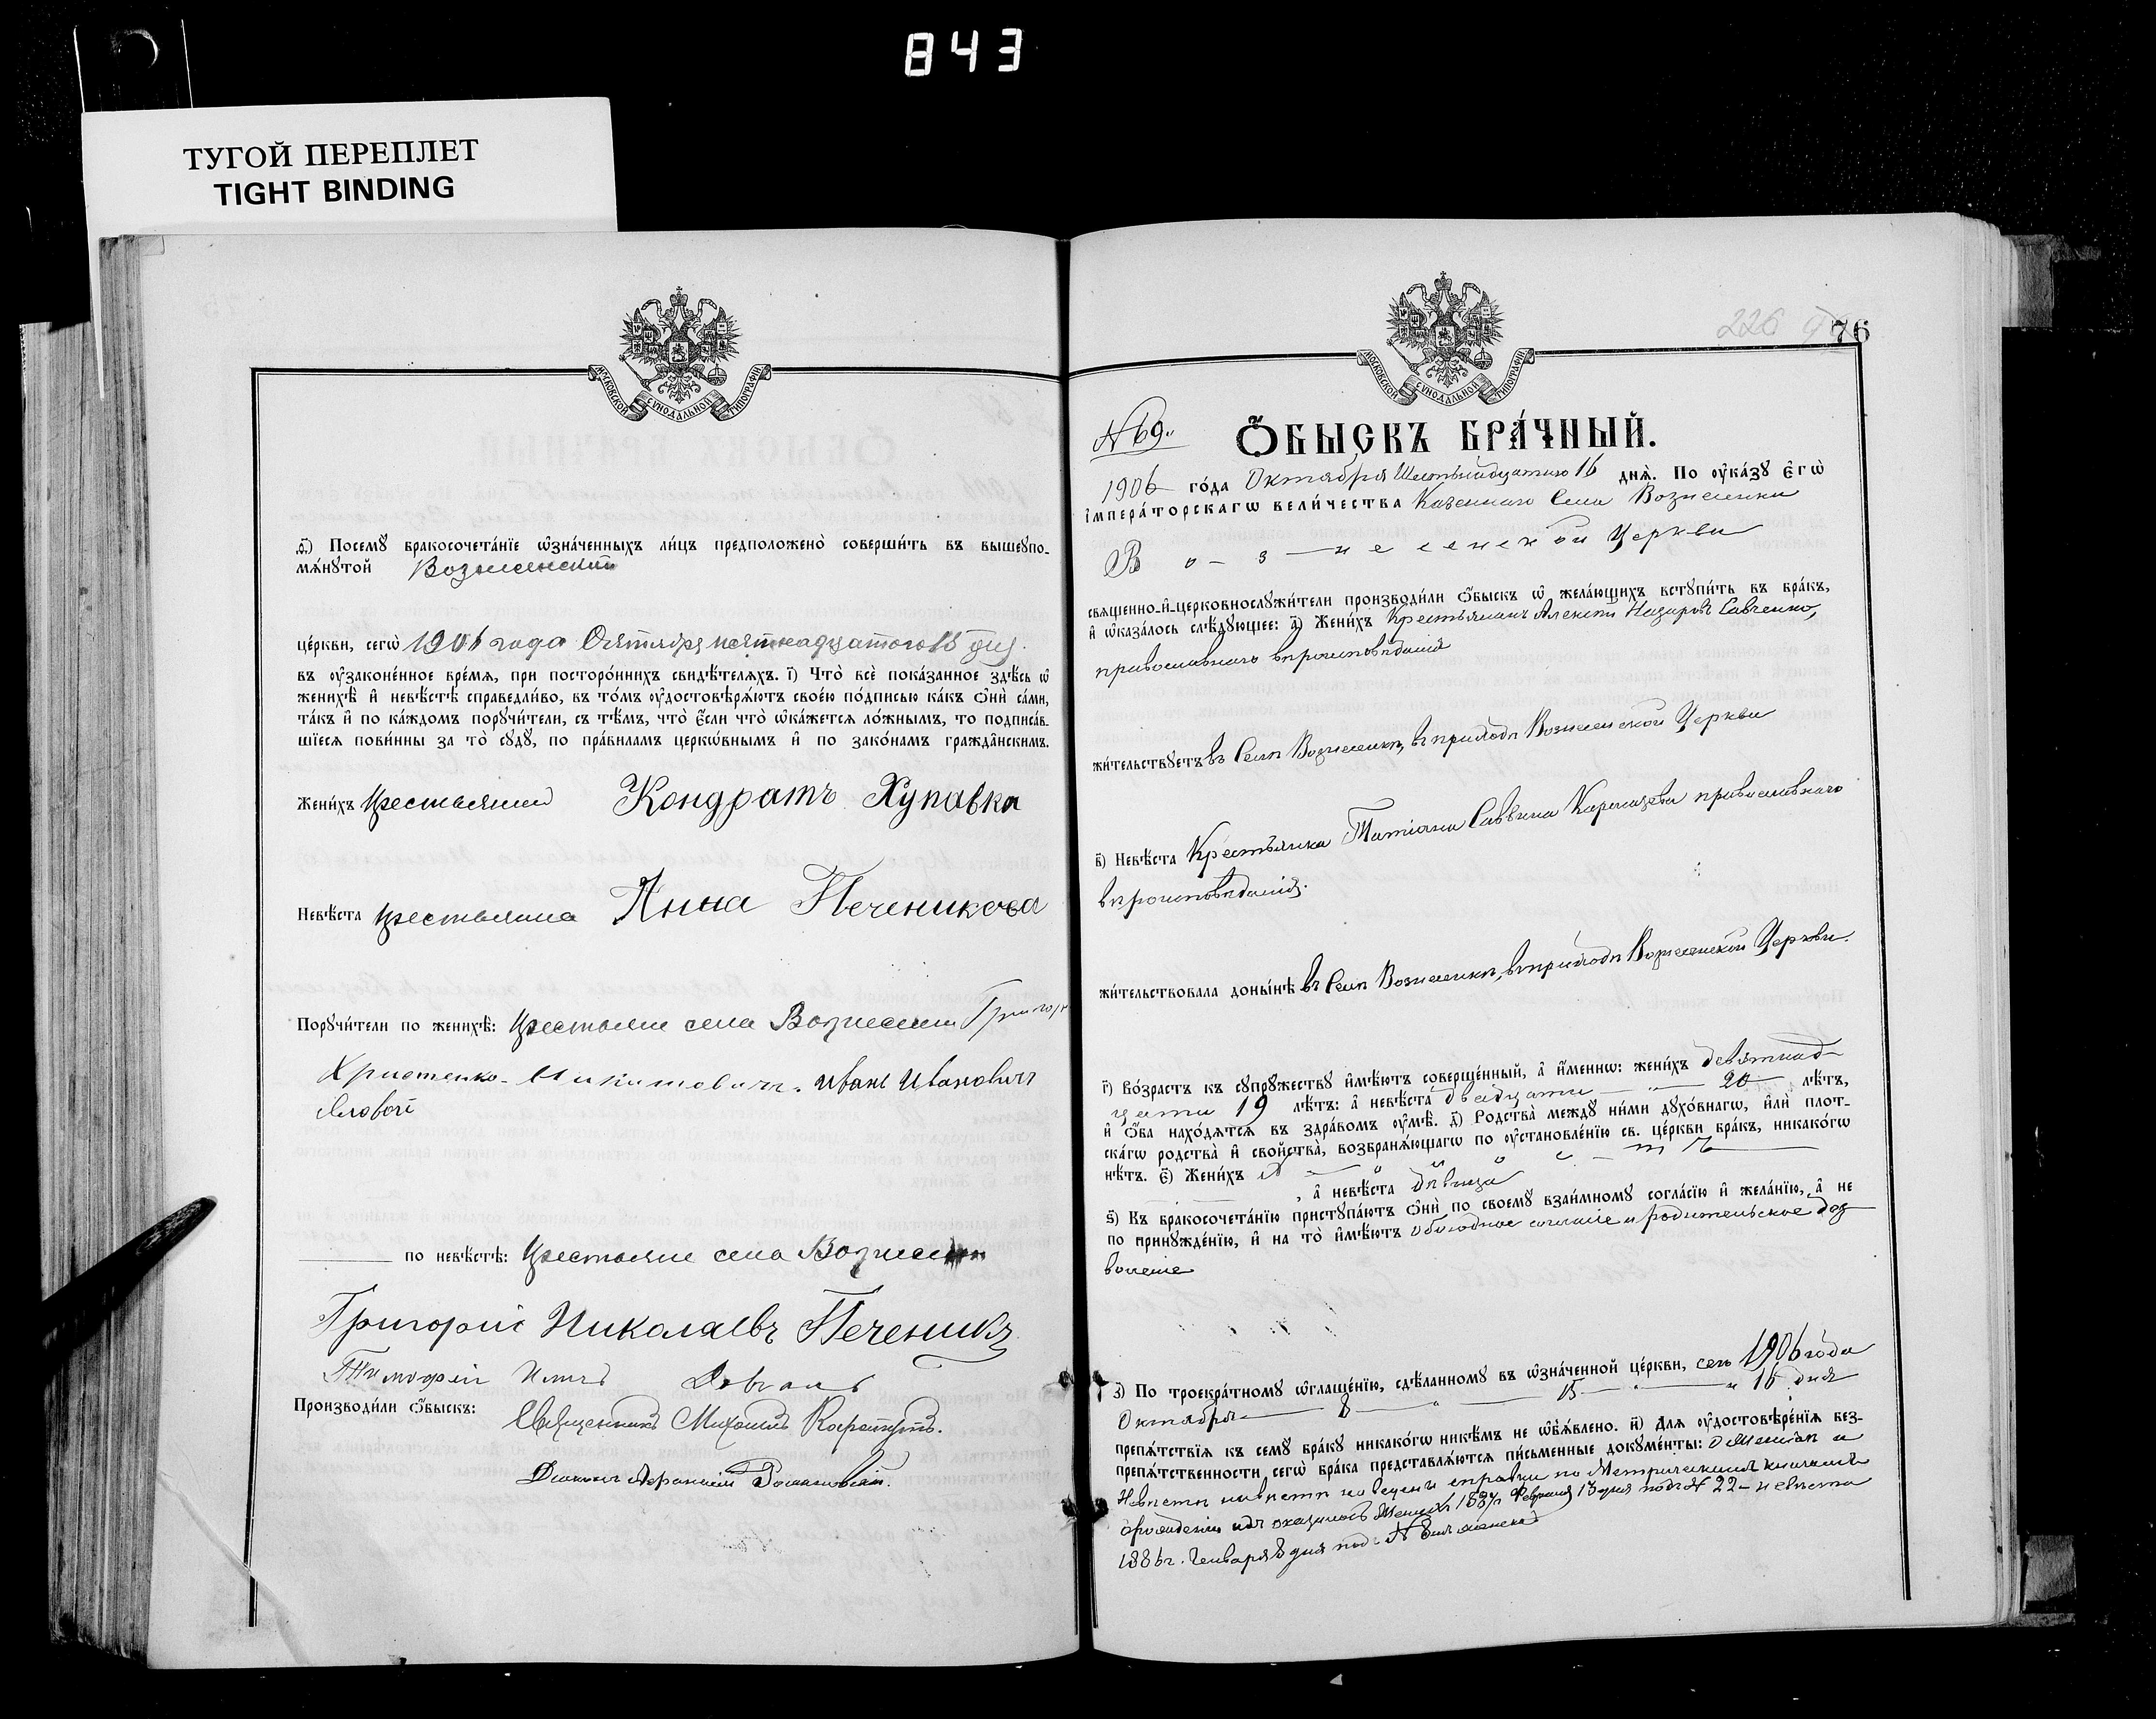 843
ТУГОЙ ПЕРЕПЛЕТ
TIGHT BINDING
МОСКОВСКОЙ СУНОДАЛЬНОЙ ТИПОГРАФІИ
ѳ҃) Посемꙋ бракосочета́нїе ѡ҆зна́ченныхъ ли́цъ предположено̀ соверши́ть въ вышеꙋпо-
мѧ́нꙋтой Вознесенской
це́ркви, сегѡ̀ 1906 года Октября пятнадцатого 15 дня.
въ ᲂу҆зако́ненное вре́мѧ, при посторо́ннихъ свидѣ́телѧхъ. і҃) Что̀ всѐ пока́занное здѣ́сь ѡ҆
женихѣ̀ и҆ невѣ́стѣ справедли́во, въ то́мъ ᲂу҆достовѣрѧ́ютъ свое́ю по́дписью ка́къ ѻ҆нѝ са́ми,
та́къ и҆ по ка́ждомъ порꙋчи́тели, съ тѣ́мъ, что̀ є҆́сли что̀ ѡ҆ка́жетсѧ ло́жнымъ, то подписа́в-
шїесѧ пови́нны за то̀ сꙋдꙋ̀, по пра́виламъ церкѡ́внымъ и҆ по зако́намъ гражда̂нскимъ.
Жени́хъ крестьянин Кондратъ Хупавка
Невѣ́ста крестьянка Анна Печеникова
Порꙋчи́тели по женихѣ̀: крестьяне села Вознесенки Григорій
Христенко Никитовичъ. иванъ Ивановичъ
Яловой
по невѣ́стѣ: крестьяне села Вознесенки
Григорій Николаевъ Печеникъ
Тимофей Довгаль
Производи́ли ѻ҆́быскъ: Священникъ Михаилъ
Діаконъ Афанасій Романовскій.
226 76
МОСКОВСКОЙ СУНОДАЛЬНОЙ ТИПОГРАФІИ
№ 69.
Ѻ҆́БЫСКЪ БРА́ЧНЫЙ.
1906 го́да Октября Шестьнадцатаго 16 днѧ̀. По ᲂу҆ка́зꙋ є҆гѡ̀
і҆мпера́торскагѡ вели́чества Казеннаго Села Вознесенки
Вознесенской Церкви
свѧщенно-и҆-церковнослꙋжи́тели производи́ли ѻ҆́быскъ ѡ҆ жела́ющихъ встꙋпи́ть въ бра́къ,
и҆ ѡ҆каза́лось слѣ́дꙋющее: а҃) Жени́хъ Крестьянинъ Алексѣй Назаровъ Савченко,
православнаго вѣроисповѣданія
жи́тельствꙋетъ въ Селѣ Вознесенкѣ, въ приходѣ Вознесенской Церкви
в҃) Невѣ́ста Крестьянка Татіана Саввина православнаго
вѣроисповѣданія.
жи́тельствовала доны́нѣ въ Селѣ Вознесенкѣ, въ приходѣ Вознесенской Церкви.
г҃) Во́зрастъ къ сꙋпрꙋ́жествꙋ и҆мѣ́ютъ соверше́нный, а҆ и҆́менно: жени́хъ девятнад-
цати 19 лѣ́тъ: а҆ невѣ́ста двадцати 20 лѣ́тъ,
и҆ ѻ҆́ба нахо́дѧтсѧ въ здра́вомъ ᲂу҆мѣ̀. д҃) Родства̀ междꙋ ни́ми дꙋхо́внагѡ, и҆лѝ плот-
ска́гѡ родства̀ и҆ сво́йства̀, возбранѧ́ющагѡ по ᲂу҆становле́нїю св. це́ркви бра́къ, никако́гѡ
нѣ́тъ. є҃) Жени́хъ холостъ
, а҆ невѣ́ста дѣвица
ѕ҃) Къ бракосочета́нїю пристꙋпа́ютъ ѻ҆нѝ по своемꙋ̀ взаи́мномꙋ согла́сїю и҆ жела́нїю, а҆ не
по принꙋжде́нїю, и҆ на то̀ и҆мѣ́ютъ обоюдное согласіе и родительское доз-
воленіе
з҃) По троекра́тномꙋ ѡ҆глаше́нїю, сдѣ́ланномꙋ въ ѡ҆зна́ченной це́ркви, сего 1906 года
Октября 8 15 и 16 дня
препѧ́тствїѧ къ семꙋ̀ бра́кꙋ никако́гѡ никѣ́мъ не ѡ҆б̾ѧ́влено. и҃) Длѧ ᲂу҆достовѣре́нїѧ без-
препѧ́тственности сегѡ̀ бра́ка представлѧ́ютсѧ пи́сьменные докꙋме́нты: о Женихѣ и
Невѣстѣ наведены справки по Метрическимъ книгамъ
о рожденіи ихъ оказалось Женихъ 1887 г. Февраля 13 дня подъ № 22 невѣста
1886 г. Января 8 дня подъ №